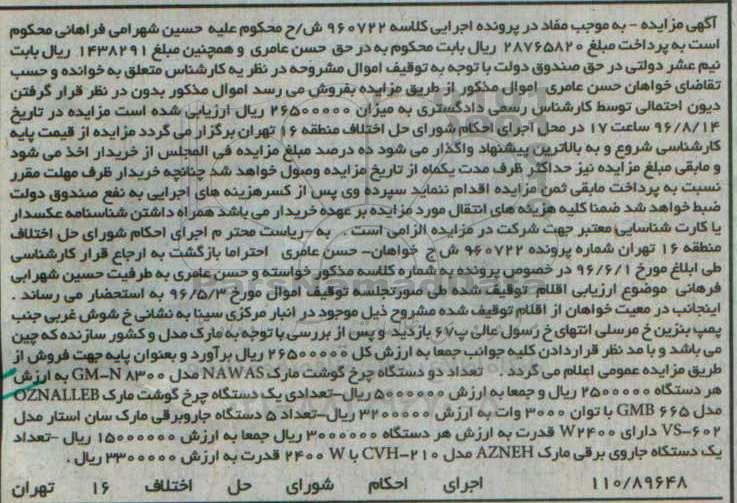 آگهی مزایده - به موجب مفاد در پرونده اجرایی کلاسه ۹۶۰۷۲۲ ش/ح محکوم علیه حسین شهرامی فراهانی محکوم
است به پرداخت مبلغ ۲۸۷۶۵۸۲۰ ریال بابت محکوم به در حق حسن عامری و همچنین مبلغ ۱۴۳۸۲۹۱ ریال بابت
نیم عشر دولتی در حق صندوق دولت با توجه به توقیف اموال مشروحه در نظریه کارشناس متعلق به خوانده و حسب
تقاضای خواهان حسن عامری اموال مذکور از طریق مزایده بفروش می رسد اموال مذکور بدون در نظر قرار گرفتن
دیون احتمالی توسط کارشناس رسمی دادگستری به میزان ۲۶۵۰۰۰۰۰ ریال ارزیابی شده است مزایده در تاریخ
۹۶/۸/۱۴ ساعت ۱۷ در محل اجرای احکام شورای حل اختلاف منطقه ۱۶ تهران برگزار می گردد مزایده از قیمت پایه
کارشناسی شروع و به بالاترین پیشنهاد واگذار می شود ده درصد مبلغ مزایده فی المجلس از خریدار اخذ می شود
و مابقی مبلغ مزایده نیز حداکثر ظرف مدت یکماه از تاریخ مزایده وصول خواهد شد چنانچه خریدار ظرف مهلت مقرر
نسبت به پرداخت مابقی ثمن مزایده اقدام ننماید سپرده وی پس از کسرهزینه های اجرایی به نفع صندوق دولت
ضبط خواهد شد ضمنا کلیه هزینه های انتقال مورد مزایده بر عهده خریدار می باشد همراه داشتن شناسنامه عکسدار
یا کارت شناسایی معتبر جهت شرکت در مزایده الزامی است . به -ریاست محتر م اجرای احکام شورای حل اختلاف
منطقه ۱۶ تهران شماره پرونده ۹۶۰۷۲۲ ش ج خواهان- حسن عامری احتراما بازگشت به ارجاع قرار کارشناسی
طی ابلاغ مورخ ۹۶/۶/۱ در خصوص پرونده به شماره کلاسه مذکور خواسته و حسن عامری به طرفیت حسین شهرابی
فرهانی موضوع ارزیابی اقلام توقیف شده طی صورتجلسه توقیف اموال مورخ ۹۶/۵/۳ به استحضار می رساند .
اینجانب در معیت خواهان از اقلام توقیف شده مشروح ذیل موجود در انبار مرکزی سینا به نشانی خ شوش غربی جنب
پمپ بنزین خ مرسلی انتهای خ رسول عالی پ۶۷ بازدید و پس از بررسی با توجه به مارک مدل و کشور سازنده که چین
می باشد و با مد نظر قراردادن کلیه جوانب جمعا به ارزش کل ۲۶۵۰۰۰۰۰ ریال برآورد و بعنوان پایه جهت فروش از
طریق مزایده عمومی اعلام می گردد . تعداد دو دستگاه چرخ گوشت مارک NAWAS مدل GM-N ۸۳۰۰ به ارزش
هر دستگاه ۲۵۰۰۰۰۰ ریال و جمعا به ارزش ۵۰۰۰۰۰۰ ریال-تعدادی یک دستگاه چرخ گوشت مارک OZNALLEB
مدل GMB ۶۶۵ با توان ۳۰۰۰ وات به ارزش ۳۲۰۰۰۰۰ ریال-تعداد ۵ دستگاه جاروبرقی مارک سان استار مدل
VS-۶۰۲ دارای W۲۴۰۰ قدرت به ارزش هر دستگاه ۳۰۰۰۰۰۰ ریال جمعا به ارزش ۱۵۰۰۰۰۰۰ ریال -تعداد
یک دستگاه جاروی برقی مارک AZNEH مدل CVH-۲۱۰ با W ۲۴۰۰ قدرت به ارزش ۳۳۰۰۰۰۰ ریال .
۱۱۰/۸۹۶۴۸ اجرای احکام شورای حل اختلاف ۱۶ تهران